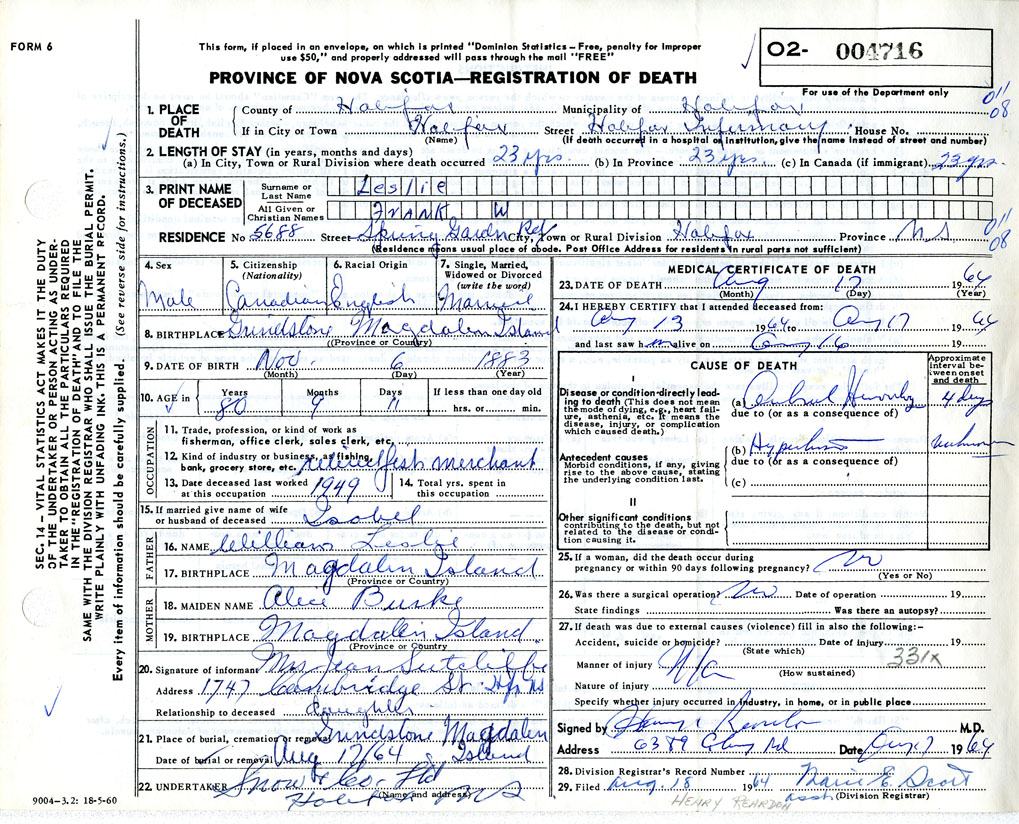 FORM 6
This form, if placed in an envelope, on which is printed "Dominion Statistics – Free, penalty for improper
use $50," and properly addressed will pass through the mail "FREE"
PROVINCE OF NOVA SCOTIA—REGISTRATION OF DEATH
02- 004716
For use of the Department only
011
08
1. PLACE OF DEATH
County of Halifax Municipality of Halifax
If in City or Town Halifax Street Halifax Infirmary House No.
(Name) (If death occurred in a hospital or institution, give the name instead of street and number)
2. LENGTH OF STAY (in years, months and days)
(a) In City, Town or Rural Division where death occurred 23 yrs. (b) In Province 23 yrs. (c) In Canada (if immigrant) 23 yrs.
3. PRINT NAME OF DECEASED
Surname or Last Name Leslie
All Given or Christian Names FRANK W
011
08
RESIDENCE No. 5688 Street Spring Garden Rd City, Town or Rural Division Halifax Province NS
(Residence means usual place of abode. Post Office Address for residents in rural parts not sufficient)
4. Sex Male
5. Citizenship (Nationality) Canadian
6. Racial Origin English
7. Single, Married, Widowed or Divorced (write the word) Married
8. BIRTHPLACE Grindstone Magdalin Island
(Province or Country)
9. DATE OF BIRTH Nov. 6 1883
(Month) (Day) (Year)
10. AGE in Years Months Days If less than one day old
80 9 11 hrs. or min.
OCCUPATION
11. Trade, profession, or kind of work as
fisherman, office clerk, sales clerk, etc.
12. Kind of industry or business, as fishing,
bank, grocery store, etc. retired fish merchant
13. Date deceased last worked at this occupation 1949
14. Total yrs. spent in this occupation
15. If married give name of wife or husband of deceased Isobel
FATHER
16. NAME William Leslie
17. BIRTHPLACE Magdalin Island
(Province or Country)
MOTHER
18. MAIDEN NAME Alice Burke
19. BIRTHPLACE Magdalin Island
(Province or Country)
20. Signature of informant Mrs Jean Sutcliffe
Address 1747 Cambridge St. Hfx NS
Relationship to deceased daughter
21. Place of burial, cremation or removal Grindstone Magdalen Island
Date of burial or removal Aug 17/64
22. UNDERTAKER Snow & Co. Ltd
Halifax NS
(Name and address)
9004-3.2: 18-5-60
MEDICAL CERTIFICATE OF DEATH
23. DATE OF DEATH Aug 17 1964
(Month) (Day) (Year)
24. I HEREBY CERTIFY that I attended deceased from:
Aug 13 1964 to Aug 17 1964
and last saw him alive on Aug 16 19
CAUSE OF DEATH
Approximate interval between onset and death
I
Disease or condition directly leading to death (This does not mean the mode of dying, e.g., heart failure, asthenia, etc. It means the disease, injury, or complication which caused death.)
(a) 4 days
due to (or as a consequence of)
Antecedent causes
Morbid conditions, if any, giving rise to the above cause, stating the underlying condition last.
(b) Hypertension unknown
due to (or as a consequence of)
(c)
II
Other significant conditions
contributing to the death, but not related to the disease or condition causing it.
25. If a woman, did the death occur during
pregnancy or within 90 days following pregnancy?
(Yes or No)
26. Was there a surgical operation? No Date of operation 19
State findings Was there an autopsy?
27. If death was due to external causes (violence) fill in also the following:-
Accident, suicide or homicide? Date of injury 19
(State which)
331X
Manner of injury N/a
(How sustained)
Nature of injury
Specify whether injury occurred in industry, in home, or in public place
Signed by Henry Reardon M.D.
Address 6389 Rd Date Aug 17 1964
28. Division Registrar's Record Number
29. Filed Aug. 18 1964 Marie E. Scott
HENRY REARDON asst. (Division Registrar)
SEC. 14 – VITAL STATISTICS ACT MAKES IT THE DUTY
OF THE UNDERTAKER OR PERSON ACTING AS UNDER-
TAKER TO OBTAIN ALL THE PARTICULARS REQUIRED
IN THE "REGISTRATION OF DEATH" AND TO FILE THE
SAME WITH THE DIVISION REGISTRAR WHO SHALL ISSUE THE BURIAL PERMIT.
WRITE PLAINLY WITH UNFADING INK. THIS IS A PERMANENT RECORD.
Every item of information should be carefully supplied. (See reverse side for instructions.)